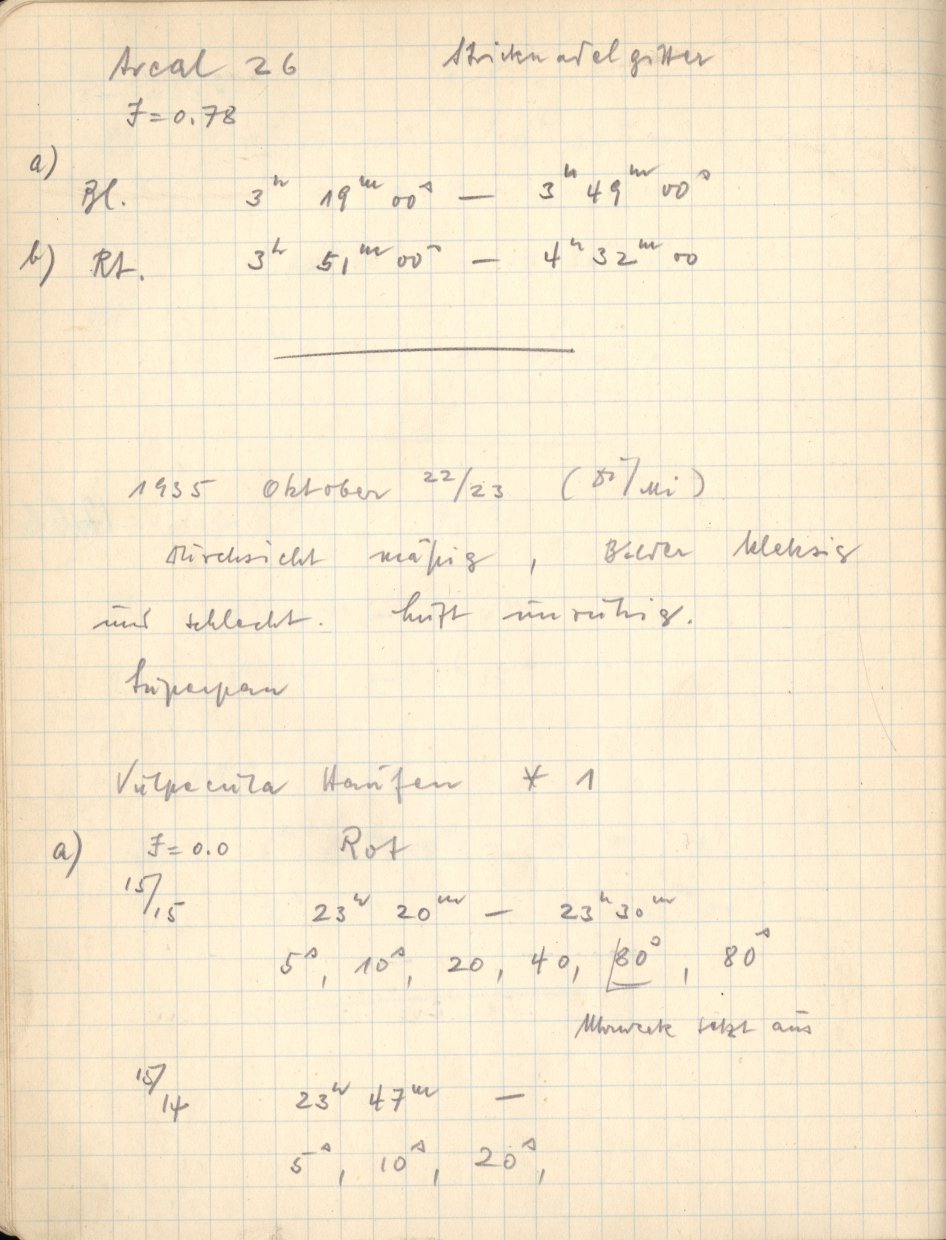 Areal 26 Stricknadelgitter
F=0.78
a)
Bl. 3h 19m 00s — 3h 49m 00s
b) Rt. 3h 51m 00s — 4h 32m 00
1935 Oktober 22/23 (Di/Mi)
Durchsicht mäßig, Bilder kleksig
und schlecht. Luft unruhig.
Superpan
Vulpecula Haufen * 1
a) F=0.0 Rot
15/15 23h 20m — 23h 30m
5s, 10s, 20, 40, 80s, 80s
Uhrwerk setzt aus
15/14 23h 47m —
5s, 10s, 20s,